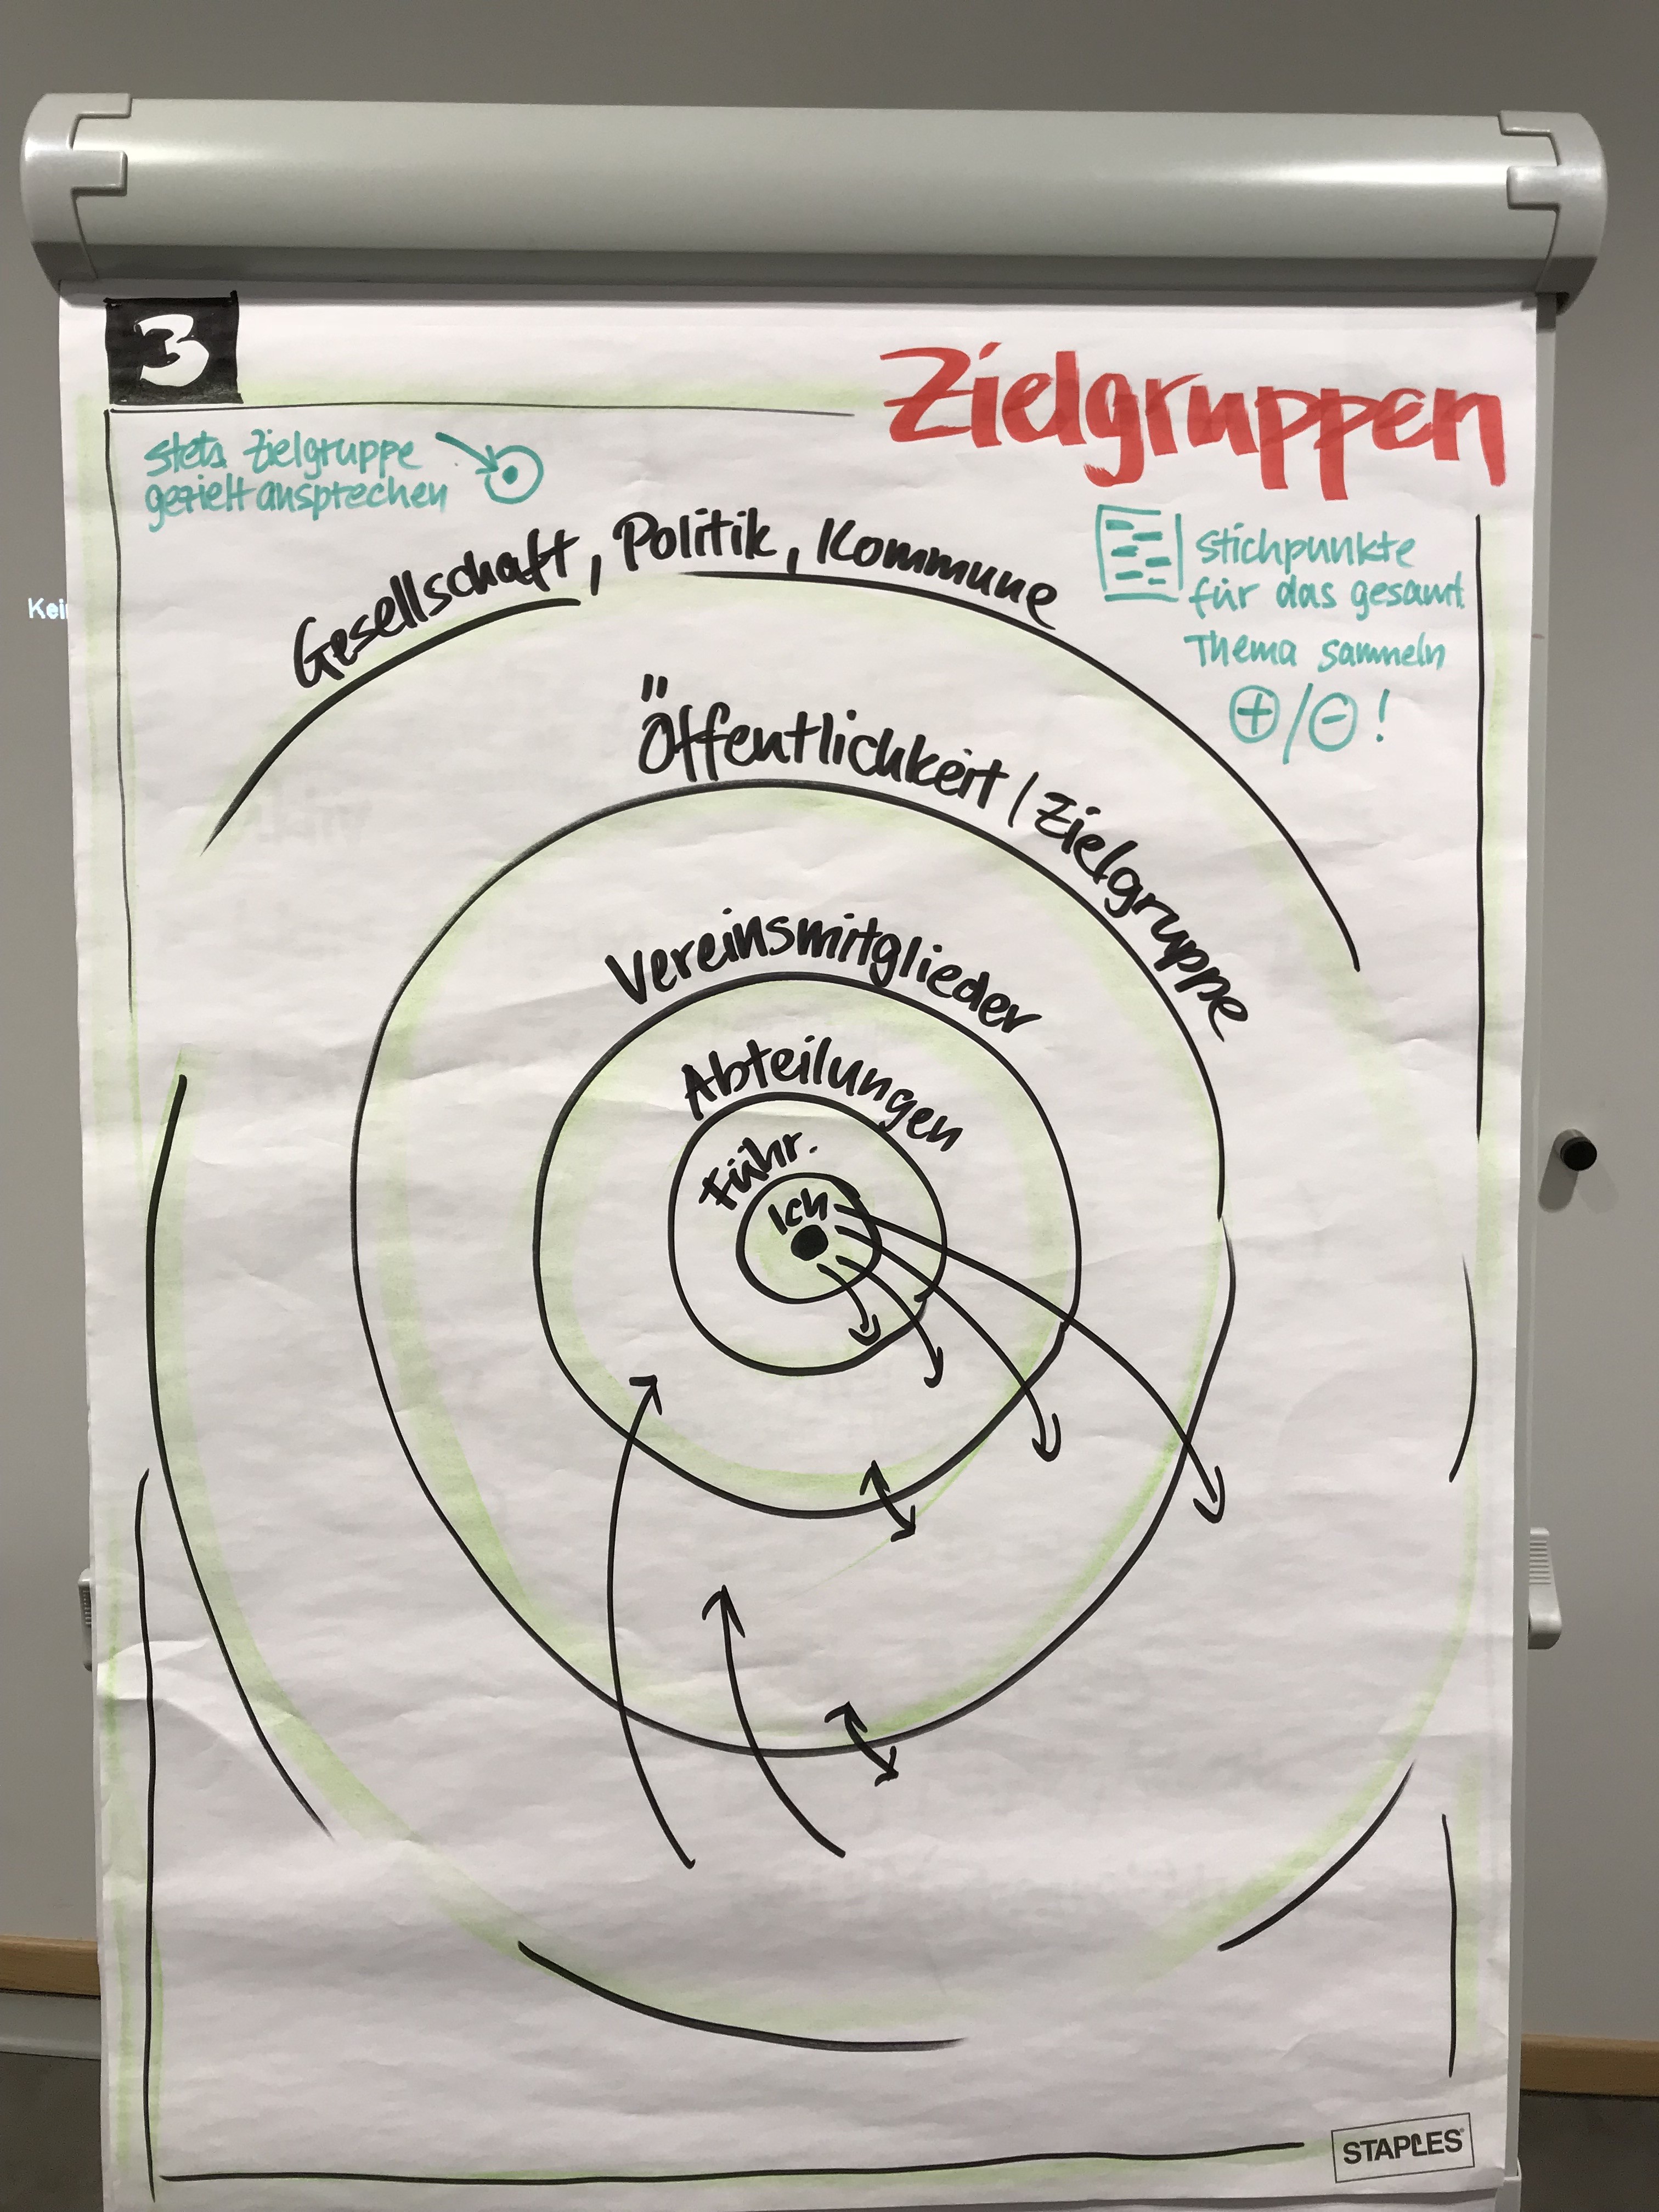 3
Zielgruppen
stets Zielgruppe
gezielt ansprechen
Stichpunkte
für das gesamt
Thema sammeln
+/- !
Gesellschaft, Politik, Kommune
Öffentlichkeit / Zielgruppe
Vereinsmitglieder
Abteilungen
Führ.
Ich
STAPLES